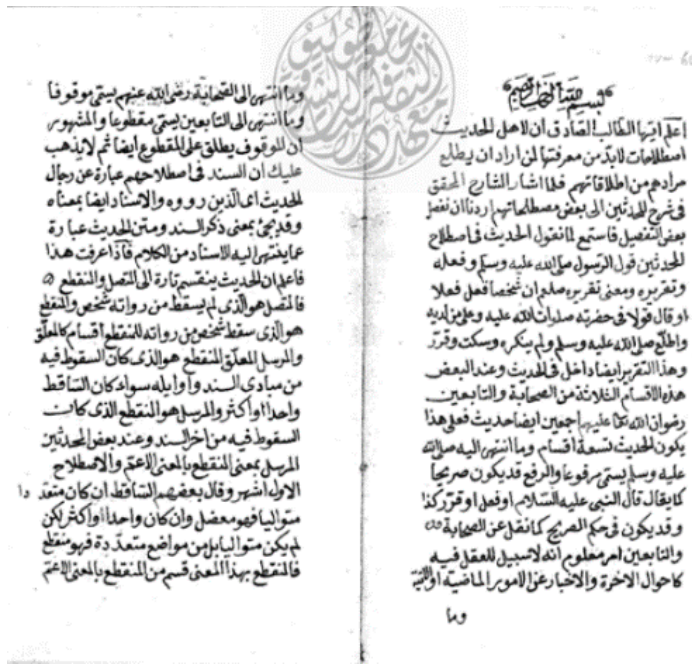 بسم الله الرحمن الرحيم
اعلم ايها الطالب الصادق ان لاهل الحديث
اصطلاحات لابد من معرفتها لمن اراد ان يطلع
مرادهم من اطلاقاتهم فلما اشار الشارح المحقق
فى شرح للمحدثين الى بعض مصطلحاتهم اردنا ان نفصل
بعض التفصيل فاستمع لما نقول الحديث فى اصطلاح
المحدثين قول الرسول صلى الله عليه وسلم وفعله
وتقريره ومعنى تقريره صلعم ان شخصا فعل فعلا
او قال قولا فى حضرته صلوات الله عليه وعلى من لديه
واطلع صلى الله عليه وسلم ولم ينكره وسكت وقرر
وهذا التقرير ايضا داخل فى الحديث وعند البعض
هذه الاقسام الثلاثة من الصحابة والتابعين
رضوان الله تعا عليهم اجمعين ايضا حديث فعلى هذا
يكون الحديث تسعة اقسام وما انتهى اليه صلى الله
عليه وسلم يسمى مرفوعا والرفع قد يكون صريحا
كما يقال قال النبى عليه السلام او فعل او قرر كذا
وقد يكون فى حكم الصريح كما نقل عن الصحابة
والتابعين امر معلوم انه لا سبيل للعقل فيه
كاحوال الاخرة والاخبار عن الامور الماضية او
وما
وما انتهى الى الصحابة رضى الله عنهم يسمى موقوفا
وما انتهى الى التابعين يسمى مقطوعا والمشهور
ان الموقوف يطلق على المقطوع ايضا ثم لا يذهب
عليك ان السند فى اصطلاحهم عبارة عن رجال
الحديث اى الذين رووه والاسناد ايضا بمعناه
وقد يجئ بمعنى ذكر السند ومتن الحديث عبارة
عما ينتهى اليه الاسناد من الكلام فاذا عرفت هذا
فاعلم ان الحديث ينقسم تارة الى المتصل والمنقطع
فالمتصل هو الذى لم يسقط من رواته شخص والمنقطع
هو الذى سقط شخص من رواته للمنقطع اقسام كالمعلق
والمرسل المعلق المنقطع هو الذى كان السقوط فيه
من مبادى السند واوايله سواء كان الساقط
واحدا او اكثر والمرسل هو المنقطع الذى كان
السقوط فيه من اخر السند وعند بعض المحدثين
المرسل بمعنى المنقطع بالمعنى الاعم والاصطلاح
الاول اشهر وقال بعضهم الساقط ان كان متعد دا
متواليا فهو معضل وان كان واحدا او اكثر لكن
لم يكن متواليا بل من مواضع متعددة فهو منقطع
فالمنقطع بهذا المعنى قسم من المنقطع بالمعنى الاعم